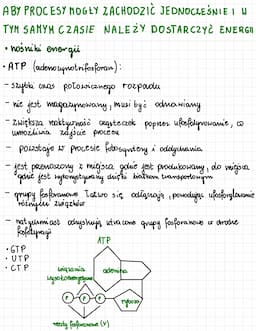 ABY PROCESY MOGŁY ZACHODZIĆ JEDNOCZEŚNIE I W
TYM SAMYM CZASIE NALEŻY DOSTARCZYĆ ENERGII
• nośniki energii
• ATP (adenozynotrifosforan):
- szybki czas połowicznego rozpadu
- nie jest magazynowany, musi być odnawiany
- zwiększa reaktywność cząsteczek poprzez ufosforylowanie, co
umożliwia zajście procesu
- powstaje w procesie fotosyntezy i oddychania
- jest przenoszony z miejsca gdzie jest produkowany, do miejsca
gdzie jest wykorzystywany dzięki białkom transportowym
- grupy fosforanowe łatwo się odłączają, powodując ufosforylowanie
różnych związków
- natychmiast odzyskują utracone grupy fosforanowe w drodze
fosforylacji
• GTP
• UTP
• CTP
ATP
wiązania
wysokoenergetyczne
adenina
P P P
ryboza
reszty fosforanowe (V)